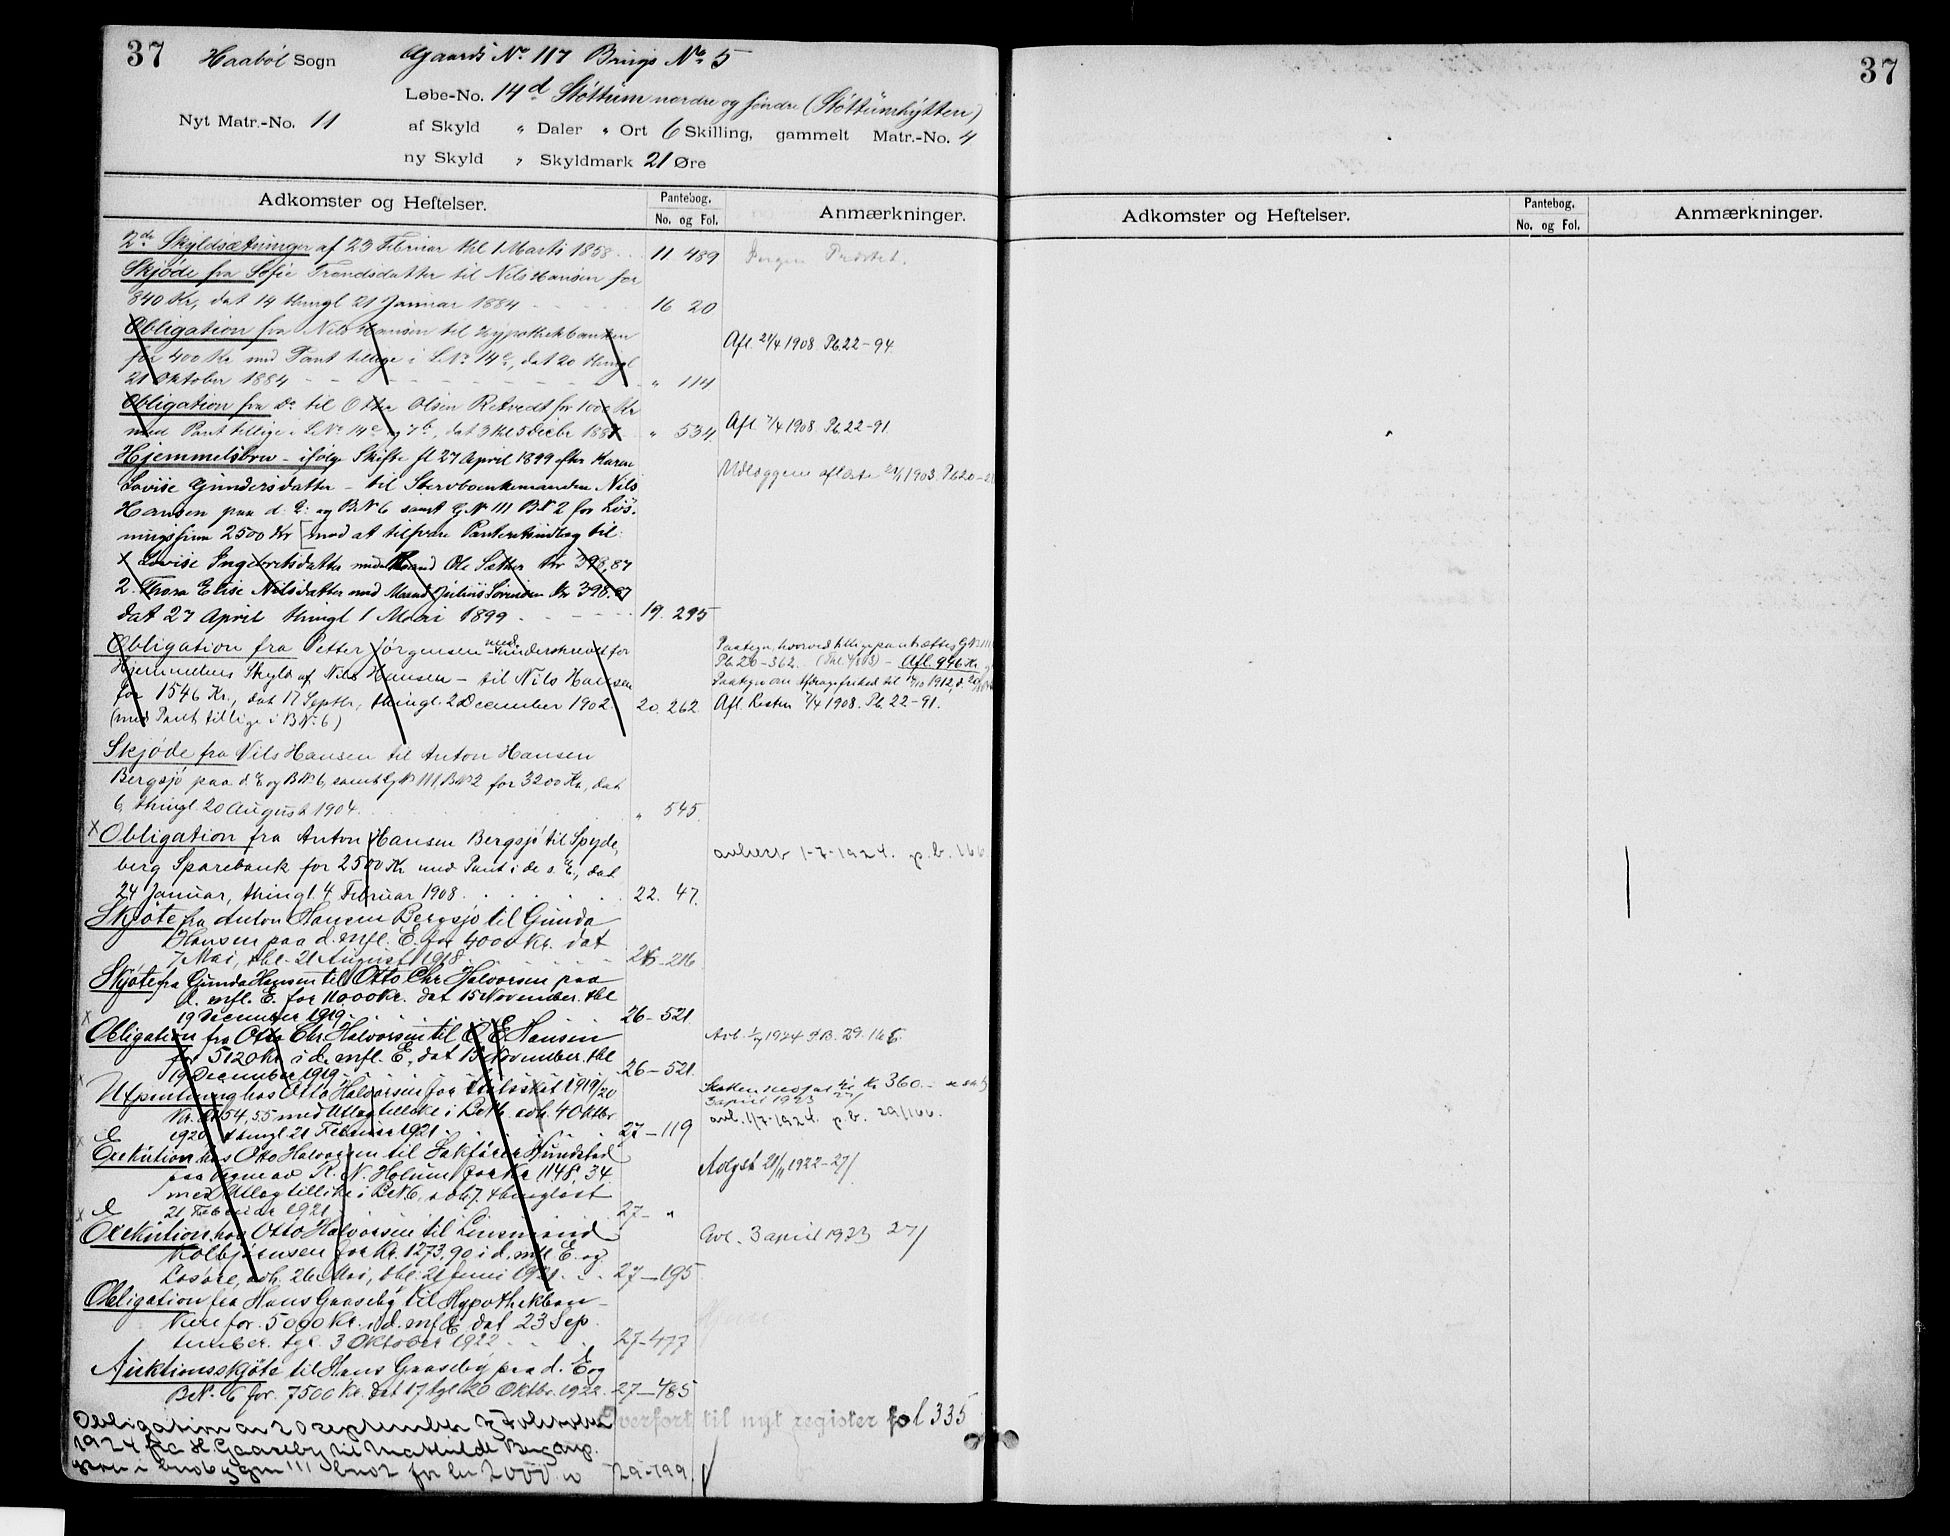 37
Haabøl Sogn
Gaards No 117 Brugs No 5
Løbe-No. 14d Støttum nordre og søndre (Støttumhytten)
Nyt Matr.-No. 11
af Skyld " Daler " Ort 6 Skilling, gammelt Matr.-No. 4
ny Skyld " Skyldmark 21 Øre
Adkomster og Heftelser.
Pantebog.
No. og Fol.
Anmærkninger.
2de Skyldsætninger af 23 Februar thl 1 Marts 1858 11 489
Skjøde fra Sofie Trondsdatter til Nils Hansen for
840 Kr, dat 14 thingl 21 Januar 1884 16 20
Obligation fra Nils Hansen til Hypothekbanken
for 400 Kr med Pant tillige i L.No 14e, dat 20 thingl
21 Oktober 1884 " 114
Afl. 21/4 1908 Pb. 22-94.
Obligation fra do til Otter Olsen Retvedt for 1000 Kr
med Pant tillige i L.No 14e og 7b, dat 3 thl 5 Decbr 188 " 534
Afl 7/4 1908. Pb. 22-91.
Hjemmelsbrev - ifølge Skifte sl 27 April 1899 efter Karen
Lovise Gundersdatter - til Stervboenkemanden Nils
Hansen paa d: E: og B.No 6 samt G.No 111 B.No 2 for Løs-
ningssum 2500 Kr [mod at tilsvare Panteretsudlæg til:
1 Lovise Ingebretsdatter med Mand Ole Sæther Kr 398,87
2. Thora Elise Nilsdatter med Mand Julius Sørensen Kr 398.87
dat 27 April thingl 1 Mai 1899 19. 295
Obligation fra Petter Jørgensen med underskrevet for
Hjemmelens Skyld af Nils Hansen - til Nils Hansen
for 1546 Kr., dat 17 Septbr, thingl. 2 December 1902 20. 262.
(med Pant tillige i B.No 6)
Pb. 20-362. Afl. 946 Kr.
Afl. Resten 7/4 1908. Pb. 22-91.
Skjøde fra Nils Hansen til Anton Hansen
Bergsjø paa d. E og B.No 6, samt G.No 111, B.No 2 for 3200 Kr., dat
6, thingl. 20 August 1904. " 545.
x Obligation fra Anton Hansen Bergsjø til Spyde-
berg Sparebank for 2500 Kr med Pant i de s. E., dat
24 Januar, thingl. 4 Februar 1908. 22. 47.
avlæst 1-7-1924. p.b. 166
Skjøte fra Anton Hansen Bergsjø til Gunda
Hansen paa d. mfl. E. for 4000 Kr. dat
7 Mai, thl. 21 August 1918. 26-216
Skjøte fra Gunda Hansen til Otto Chr. Halvorsen paa
d. mfl. E. for 11000 Kr. dat 15 November. thl
19 December 1919. 26-521
x Obligation fra Otto Chr. Halvorsen til E. Hansen
for 5120 Kr. i d. mfl. E, dat 15 November. thl
19 December 1919. 26-521.
Avl. 1/7 1924 P.B. 29. 166.
Utpantning hos Otto Halvorsen for 1919/20
Kr. 54,55 med Utlæg tillike i B.No 6. avh. 4 Oktbr
1920, thingl 21 Februar 1921. 27-119
3 april 1923 27/
avl. 1/7-1924. p.b. 29/166.
x Exekution hos Otto Halvorsen til Sakfører Hundstad
paa Vegne av K. N. Holum for Kr 1148, 34.
med Utlæg tillike i B.No 6, avh. 7. thinglæst
21 Februar 1921 27- "
Avlyst 21/11 1922-27/
x Exekution hos Otto Halvorsen til Lensmand
Kolbjørnsen for Kr. 1273,90 i d. mfl. E. og
Løsøre, avh. 26 Mai, thl. 21 Juni 1921. 27-195
Avl. 3 april 1923 27/
Obligation fra Hans Gaaseby til Hypothekban-
ken for 5000 Kr. i d. mfl. E. dat 23 Sep-
tember. tgl. 3 Oktober 1922 27-477
Auktionsskjøte til Hans Gaaseby paa d. E og
B.No. 6 for 7500 Kr. dat 17 tgl 20 Oktbr. 1922. 27-485
Overført til nyt register fol 335
Obligation av 20 september tgl Oktober
1924 fra H. Gaaseby til Mathilde Bergarp.
111 bno 2 for kr 2000 29-199.
37
Adkomster og Heftelser.
Pantebog.
No. og Fol.
Anmærkninger.